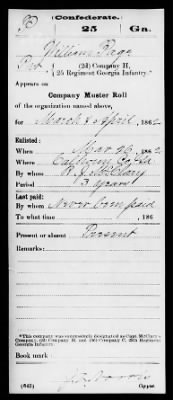 P
Confederate.
25 Ga.
William Page
Pvt, (2d) Company H,
25 Regiment Georgia Infantry.*
Appears on
Company Muster Roll
of the organization named above,
for March & April, 1862
Enlisted:
When Mar 26, 1862
Where Calhoun Co Ga
By whom R. J. McClary
Period 3 years
Last paid:
By whom Never been paid
To what time , 186
Present or absent Present
Remarks:
*This company was successively designated as Capt. McClary's
Company, (2d) Company H and (2d) Company C, 25th Regiment
Georgia Infantry.
Book mark:
(642)
Copyist.